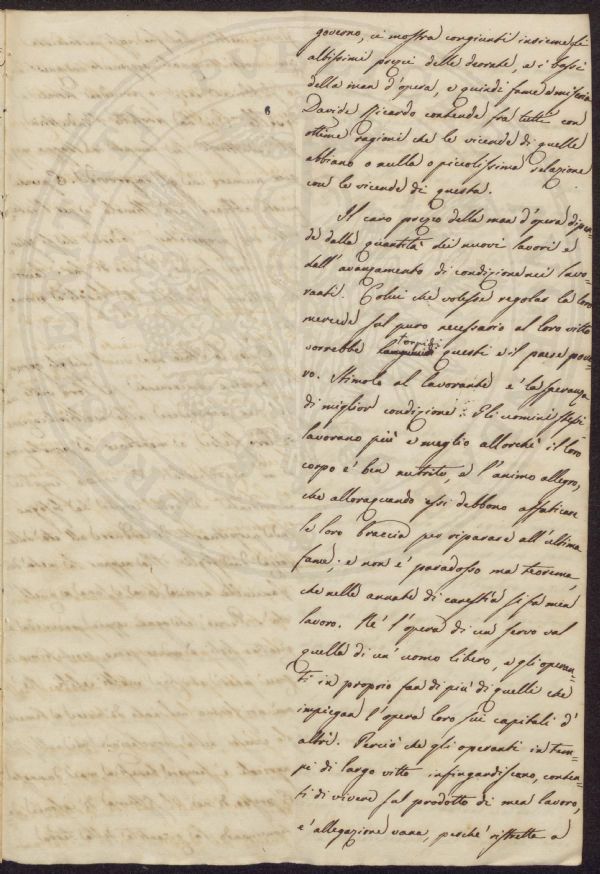 governo, ci mostra congiunti insieme gli
altissimi prezzi delle derrate, e i bassi
della man d'opera, e quindi fame e miseria
Davide Ricardo contende fra tutti con
ottime ragioni che le vicende di quelle
abbiano o nulla o piccolissima relazione
con le vicende di questa.
Il caro prezzo della man d'opera dipen-
de dalla quantità dei nuovi lavori e
dall'avanzamento di condizione nei lavo-
ranti. Colui che volesse regolar la loro
mercede sul puro necessario al loro vitto
torpidi
vorrebbe questi e il paese pove-
ro. Stimolo al lavorante è la speranza
di miglior condizione. Gli uomini stessi
lavorano più e meglio allorchè il loro
corpo è ben nutrito, e l'animo allegro,
che alloraquando essi debbono affaticare
le loro braccia per riparare all'ultima
fame; e non è paradosso ma teorema,
che nelle annate di carestia si fa men
lavoro. Nè l'opera di un servo val
quella di un'uomo libero, e gli operan=
ti in proprio fan di più di quelli che
impiegan l'opera loro sui capitali d'
altri. Perciò che gli operanti in tem=
pi di largo vitto infingardiscono, conten=
ti di vivere sul prodotto di men lavoro,
è allegazione vana, perchè ristretta a